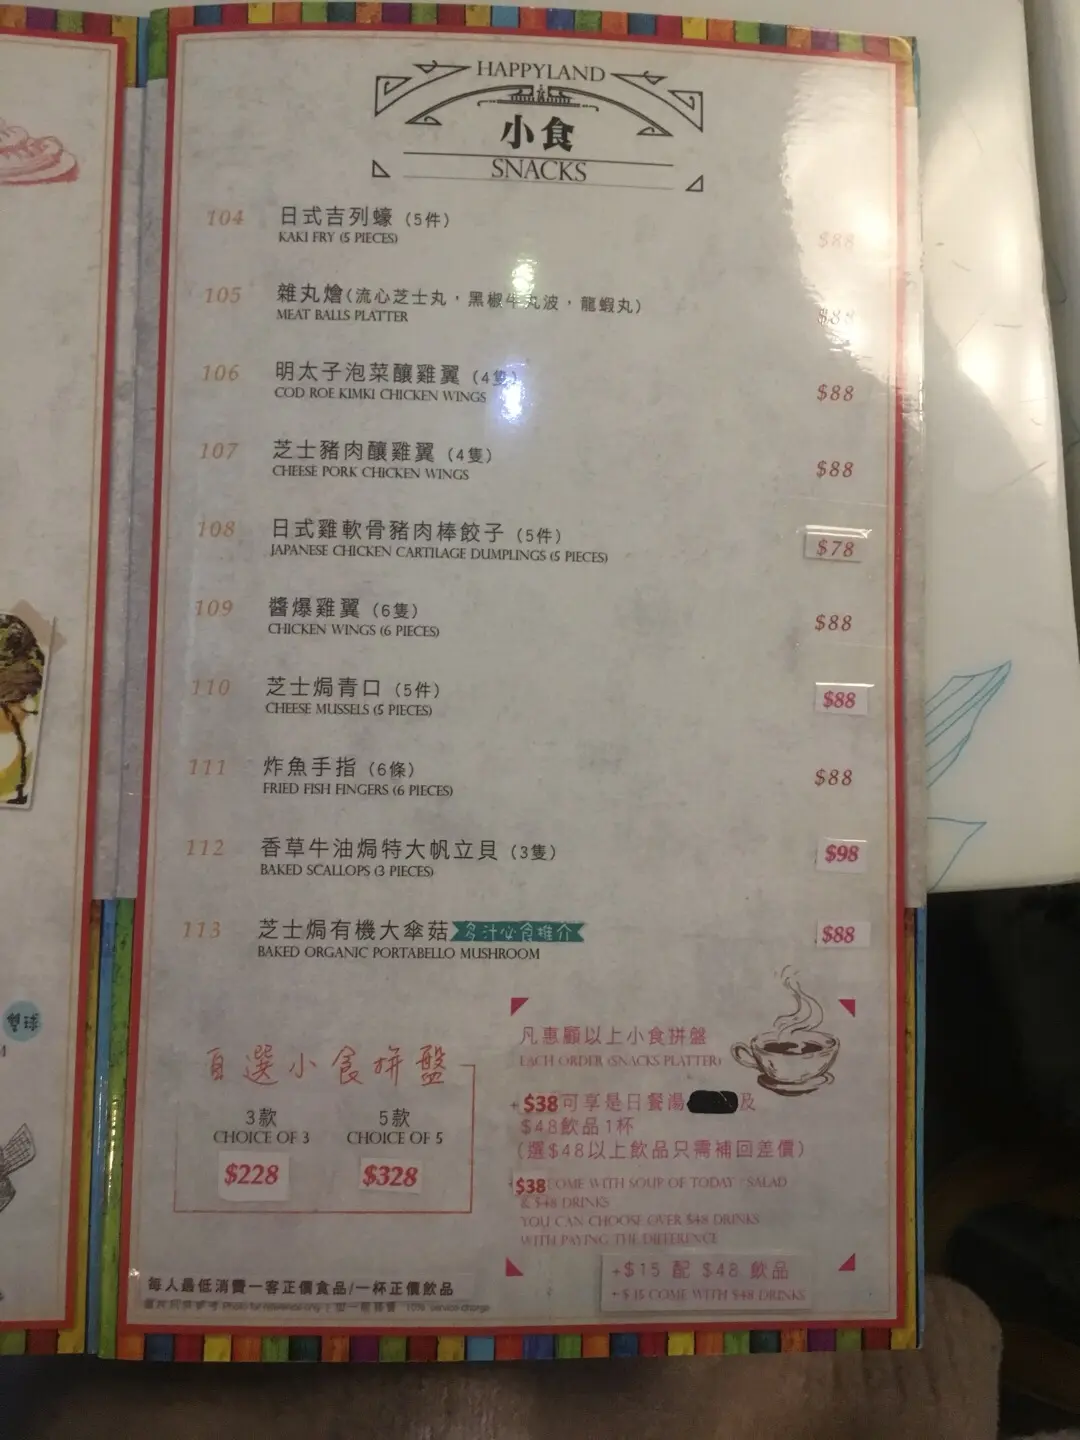 HAPPYLAND
小食
SNACKS
104 日式吉列蠔 (5件) $88
KAKI FRY (5 PIECES)
105 雜丸燴(流心芝士丸，黑椒牛丸波，龍蝦丸) $88
MEAT BALLS PLATTER
106 明太子泡菜釀雞翼 (4隻) $88
COD ROE KIMKI CHICKEN WINGS
107 芝士豬肉釀雞翼 (4隻) $88
CHEESE PORK CHICKEN WINGS
108 日式雞軟骨豬肉棒餃子 (5件) $78
JAPANESE CHICKEN CARTILAGE DUMPLINGS (5 PIECES)
109 醬爆雞翼 (6隻) $88
CHICKEN WINGS (6 PIECES)
110 芝士焗青口 (5件) $88
CHEESE MUSSELS (5 PIECES)
111 炸魚手指 (6條) $88
FRIED FISH FINGERS (6 PIECES)
112 香草牛油焗特大帆立貝 (3隻) $98
BAKED SCALLOPS (3 PIECES)
113 芝士焗有機大傘菇 多汁必食推介 $88
BAKED ORGANIC PORTABELLO MUSHROOM
自選小食拼盤
3款 5款
CHOICE OF 3 CHOICE OF 5
$228 $328
凡惠顧以上小食拼盤
EACH ORDER (SNACKS PLATTER)
+$38可享是日餐湯 及
$48飲品1杯
(選$48以上飲品只需補回差價)
$38 COME WITH SOUP OF TODAY / SALAD
& $48 DRINKS
YOU CAN CHOOSE OVER $48 DRINKS
WITH PAYING THE DIFFERENCE
+$15 配 $48 飲品
+$15 COME WITH $48 DRINKS
每人最低消費一客正價食品/一杯正價飲品
圖片只供參考 Photo for reference only | 加一服務費 10% service charge
雙球